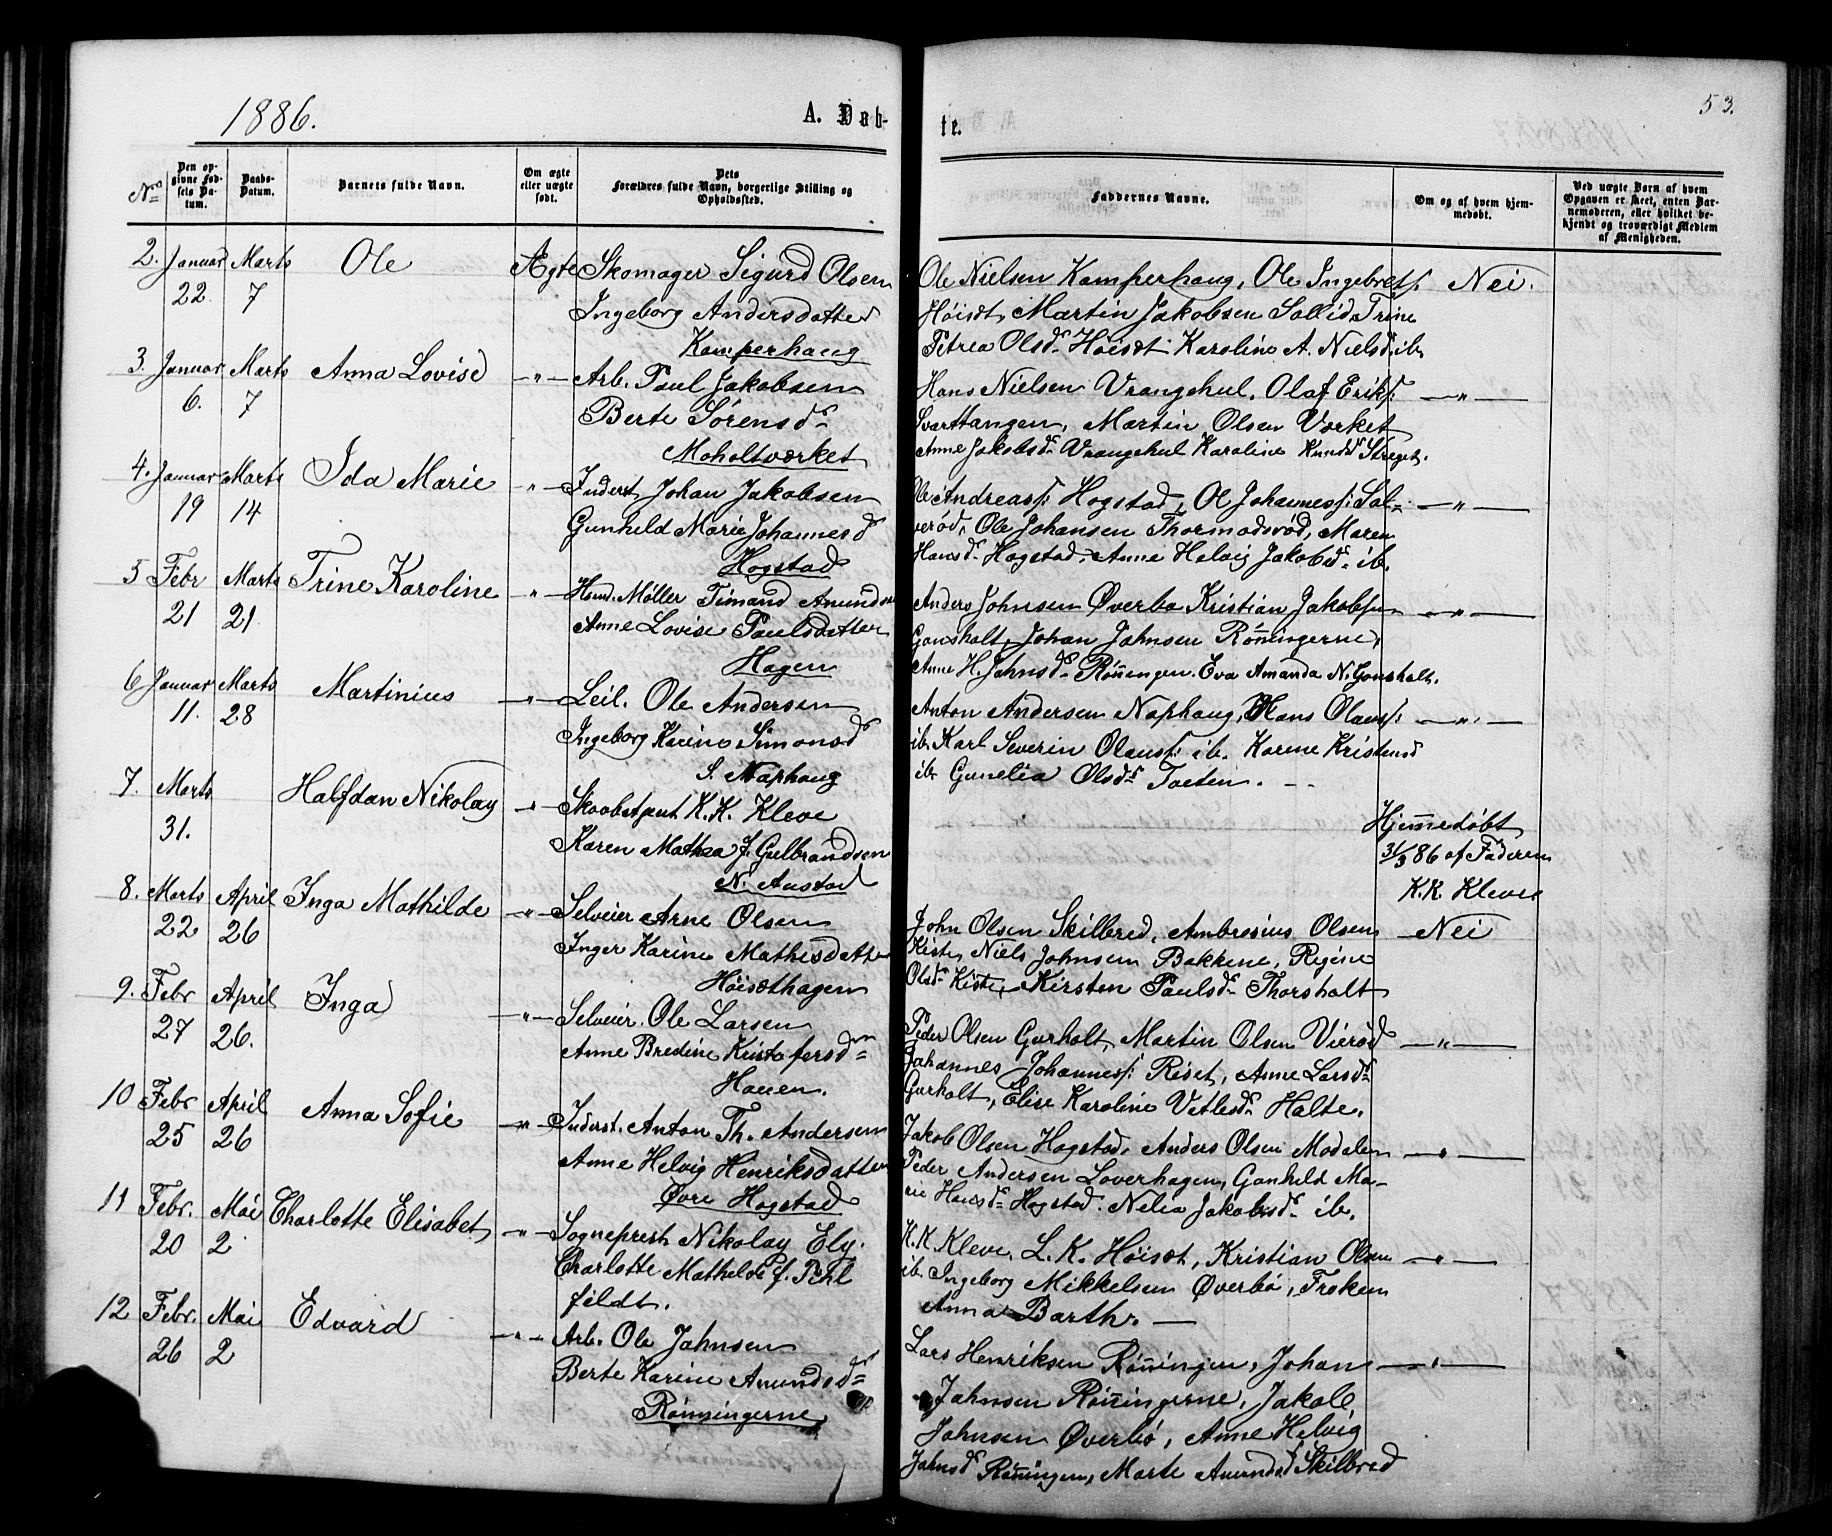 1886.
A. Døb-
te.
53.
No
Den op-
givne Fød-
sels Da-
tum.
Daabs-
Datum.
Barnets fulde Navn.
Om ægte
eller uægte
født.
Dets
Forældres fulde Navn, borgerlige Stilling og
Opholdssted.
Faddernes Navne.
Om og af hvem hjem-
medøbt.
Ved uægte Børn af hvem
Opgaven er skeet, enten Bar-
nemoderen, eller hvilket be-
kjendt og troværdigt Medlem
af Menigheden.
2. Januar 22. Marts 7 Ole Ægte Skomager Sigurd Olsen
Ingeborg Andersdatter
Kamperhaug
Ole Nielsen Kamperhaug, Ole Ingebrets: Nei.
Høisæt, Martin Jakobsen Sollid, Trine
Petrea Olsd. Høisæt Karoline A. Nielsd. ib.
3. Januar 6. Marts 7 Anna Lovise —"— Arb. Poul Jakobsen
Berte Sørensd.
Moholtværket
Hans Nielsen Vrangehul, Olaf Eriks: —"—
Svarttangen, Martin Olsen Værket
Anne Jakobsd. Vrangehul Karoline Knudsd Streget.
4. Januar 19 Marts 14 Ida Marie —"— Inderst Johan Jakobsen
Gunhild Marie Johannesd
Hogstad
Ole Andreass: Hogstad, Ol Johanness: Sol- —"—
verød, Ole Johansen Thormodsrød, Maren
Hansd. Hogstad, Anne Helvig Jakobsd. ib.
5 Febr 21 Marts 21. Trine Karoline —"— Hmd. Møller Timand Amundsen
Anne Lovise Paulsdatter
Hagen
Anders Johnsen Øverbø Kristian Jakobsen —"—
Gonsholt, Johan Jahnsen Rønningerne,
Anne H. Jahnsd. Rønningen. Eva Amanda N. Gonsholt.
6 Januar 11. Marts 28 Martinius —"— Leil. Ole Andersen
Ingeborg Karine Simonsd
S. Naphaug
Anton Andersen Naphaug, Hans Olaus: —"—
ib. Karl Severin Olaus: ib. Karine Kristensd
ib. Gunelia Olsd. Toeten.
7. Marts 31. Halfdan Nikolay —"— Skoobetjent K. K. Kleve
Karen Mathea f. Gulbrandsen
N. Austad
Hjemmedøbt
31/3 86 af Faderen
K. K. Kleve
8. Marts 22 April 26 Inga Mathilde —"— Selveier Arne Olsen
Inger Karine Mathisdatter
Høisæthagen
John Olsen Skilbred, Ambrosius Olsen Nei
Kiste, Niels Johnsen Bakkene, Regine
Olsd. Kiste, Kirsten Paulsd. Thorsholt
9. Febr 27 April 26. Inga —"— Selveier Ole Larsen
Anne Bredine Kristofersd.
Hauen.
Peder Olsen Gurholt, Martin Olsen Vierød —"—
Johannes Johanness: Riset, Anne Larsd.
Gurholt, Elise Karoline Vetlesd. Holte.
10 Febr 25 April 26 Anna Sofie —"— Inderst. Anton Th. Andersen
Anne Helvig Henriksdatter
Øvre Hogstad
Jakob Olsen Hogstad, Anders Olsen Modalen —"—
Peder Andersen Loverhagen, Gonhild Ma-
rie Hansd. Hogstad. Nelia Jakobsd. ib.
11 Febr. 20 Mai 2 Charlotte Elisabet —"— Sogneprest Nikolay Ely.
Charlotte Mathilde f. Pihl
feldt.
K. K. Kleve, L. K. Høisæt, Kristian Olsen —"—
ib. Ingeborg Mikkelsen Øverbø, Frøken
Anna Barth. —
12 Febr. 26 Mai 2 Edvard —"— Arb. Ole Jahnsen
Berte Karine Amundsd.
Rønningerne
Lars Henriksen Rønningen, Johan —"—
Jahnsen Rønningerne, Jakob
Jahnsen Øverbø, Anne Helvig
Jahnsd Rønningen, Marte Amundsd Skilbred